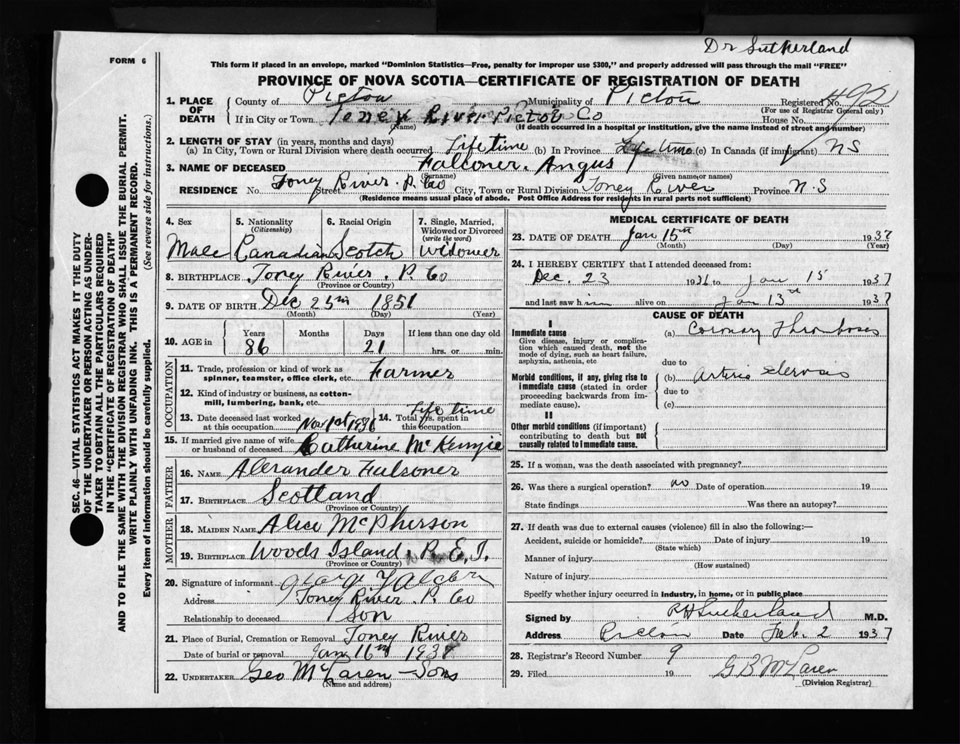 Dr Sutherland
FORM 6
This form if placed in an envelope, marked "Dominion Statistics—Free, penalty for improper use $300," and properly addressed will pass through the mail "FREE"
PROVINCE OF NOVA SCOTIA—CERTIFICATE OF REGISTRATION OF DEATH
1. PLACE OF DEATH County of Pictou Municipality of Pictou Registered No.
(For use of Registrar General only)
If in City or Town Toney River Pictou Co House No.
(Name) (If death occurred in a hospital or institution, give the name instead of street and number)
2. LENGTH OF STAY (in years, months and days)
(a) In City, Town or Rural Division where death occurred Life time (b) In Province Life time (c) In Canada (if immigrant) N S
3. NAME OF DECEASED Falconer. Angus
(Surname) (Given name or names)
RESIDENCE No. Toney River. P. Co Street City, Town or Rural Division Toney River Province N. S
(Residence means usual place of abode. Post Office Address for residents in rural parts not sufficient)
4. Sex Male
5. Nationality (Citizenship) Canadian
6. Racial Origin Scotch
7. Single, Married, Widowed or Divorced (write the word) Widower
8. BIRTHPLACE Toney River. P. Co
(Province or Country)
9. DATE OF BIRTH Dec 25th 1851
(Month) (Day) (Year)
10. AGE in Years 86 Months Days 21 If less than one day old
hrs. or min.
OCCUPATION
11. Trade, profession or kind of work as spinner, teamster, office clerk, etc. Farmer
12. Kind of industry or business, as cotton-mill, lumbering, bank, etc.
13. Date deceased last worked at this occupation Nov 1st 1936 14. Total yrs. spent in this occupation Life time
15. If married give name of wife or husband of deceased Catherine McKenzie
FATHER
16. NAME Alexander Falconer
17. BIRTHPLACE Scotland
(Province or Country)
MOTHER
18. MAIDEN NAME Alice McPherson
19. BIRTHPLACE Woods Island, P. E. I.
(Province or Country)
20. Signature of informant
Address Toney River P. Co
Relationship to deceased Son
21. Place of Burial, Cremation or Removal Toney River
Date of burial or removal Jan 16th 1937
22. UNDERTAKER Geo McLaren Sons
(Name and address)
MEDICAL CERTIFICATE OF DEATH
23. DATE OF DEATH Jan 15th 1937
(Month) (Day) (Year)
24. I HEREBY CERTIFY that I attended deceased from:
Dec. 23 1936 to Jan 15 1937
and last saw him alive on Jan 13th 1937
CAUSE OF DEATH
I
Immediate cause (a) Coronary Thrombosis
Give disease, injury or complication which caused death, not the mode of dying, such as heart failure, asphyxia, asthenia, etc
due to
Morbid conditions, if any, giving rise to immediate cause (stated in order proceeding backwards from immediate cause). (b) Arterio sclerosis
due to
(c)
II
Other morbid conditions (if important) contributing to death but not causally related to immediate cause.
25. If a woman, was the death associated with pregnancy?
26. Was there a surgical operation? no Date of operation 19
State findings Was there an autopsy?
27. If death was due to external causes (violence) fill in also the following:—
Accident, suicide or homicide? Date of injury 19
(State which)
Manner of injury
(How sustained)
Nature of injury
Specify whether injury occurred in industry, in home, or in public place
Signed by R H Sutherland M.D.
Address Pictou Date Feb. 2 1937
28. Registrar's Record Number 9
29. Filed G B McLaren 19
(Division Registrar)
SEC. 46—VITAL STATISTICS ACT MAKES IT THE DUTY
OF THE UNDERTAKER OR PERSON ACTING AS UNDER-
TAKER TO OBTAIN ALL THE PARTICULARS REQUIRED
IN THE "CERTIFICATE OF REGISTRATION OF DEATH"
AND TO FILE THE SAME WITH THE DIVISION REGISTRAR WHO SHALL ISSUE THE BURIAL PERMIT.
WRITE PLAINLY WITH UNFADING INK. THIS IS A PERMANENT RECORD.
Every item of information should be carefully supplied. (See reverse side for instructions.)